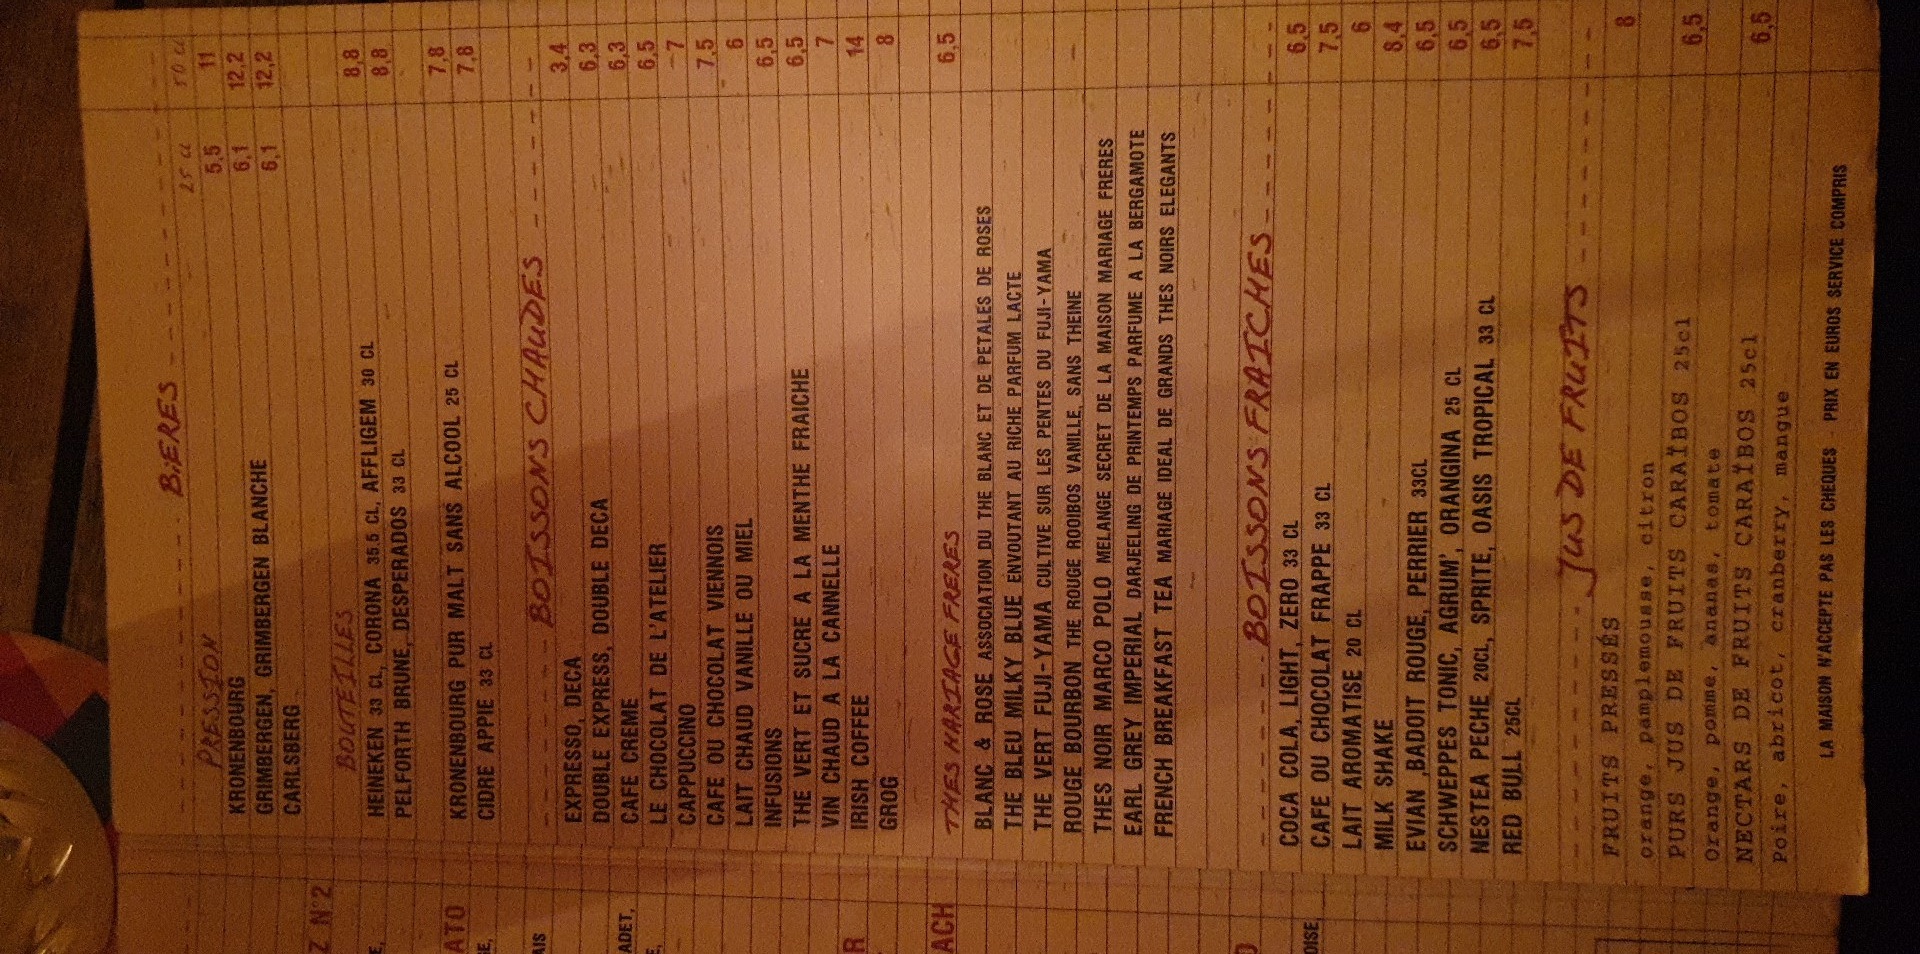 BIERES
25 cl 50 cl
PRESSION
KRONENBOURG 5,5 11
GRIMBERGEN, GRIMBERGEN BLANCHE 6,1 12,2
CARLSBERG 6,1 12,2
BOUTEILLES
HEINEKEN 33 CL, CORONA 35.5 CL, AFFLIGEM 30 CL 8,8
PELFORTH BRUNE, DESPERADOS 33 CL 8,8
KRONENBOURG PUR MALT SANS ALCOOL 25 CL 7,8
CIDRE APPIE 33 CL 7,8
BOISSONS CHAUDES
EXPRESSO, DECA 3,4
DOUBLE EXPRESS, DOUBLE DECA 6,3
CAFE CREME 6,3
LE CHOCOLAT DE L'ATELIER 6,5
CAPPUCCINO 7
CAFE OU CHOCOLAT VIENNOIS 7,5
LAIT CHAUD VANILLE OU MIEL 6
INFUSIONS 6,5
THE VERT ET SUCRE A LA MENTHE FRAICHE 6,5
VIN CHAUD A LA CANNELLE 7
IRISH COFFEE 14
GROG 8
THES MARIAGE FRERES 6,5
BLANC & ROSE ASSOCIATION DU THE BLANC ET DE PETALES DE ROSES
THE BLEU MILKY BLUE ENVOUTANT AU RICHE PARFUM LACTE
THE VERT FUJI-YAMA CULTIVE SUR LES PENTES DU FUJI-YAMA
ROUGE BOURBON THE ROUGE ROOIBOS VANILLE, SANS THEINE
THES NOIR MARCO POLO MELANGE SECRET DE LA MAISON MARIAGE FRERES
EARL GREY IMPERIAL DARJEELING DE PRINTEMPS PARFUME A LA BERGAMOTE
FRENCH BREAKFAST TEA MARIAGE IDEAL DE GRANDS THES NOIRS ELEGANTS
BOISSONS FRAICHES
COCA COLA, LIGHT, ZERO 33 CL 6,5
CAFE OU CHOCOLAT FRAPPE 33 CL 7,5
LAIT AROMATISE 20 CL 6
MILK SHAKE 8,4
EVIAN ,BADOIT ROUGE, PERRIER 33CL 6,5
SCHWEPPES TONIC, AGRUM', ORANGINA 25 CL 6,5
NESTEA PECHE 20CL, SPRITE, OASIS TROPICAL 33 CL 6,5
RED BULL 25CL 7,5
JUS DE FRUITS
FRUITS PRESSÉS 8
orange, pamplemousse, citron
PURS JUS DE FRUITS CARAÏBOS 25cl 6,5
Orange, pomme, ananas, tomate
NECTARS DE FRUITS CARAÏBOS 25cl 6,5
Poire, abricot, cranberry, mangue
LA MAISON N'ACCEPTE PAS LES CHEQUES - PRIX EN EUROS SERVICE COMPRIS
Z N°2
E,
ATO
GE,
AIS
ADET,
E,
R
ACH
OISE,